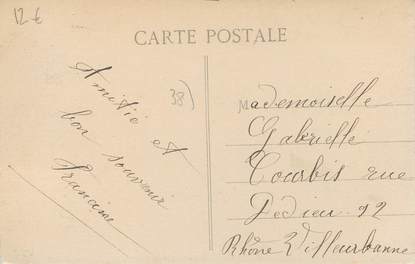 12 €
CARTE POSTALE
38)
Amitié et
bon souvenir
Francine
Mademoiselle
Gabrielle
Courbis rue
Dedieu 92
Rhône Villeurbanne